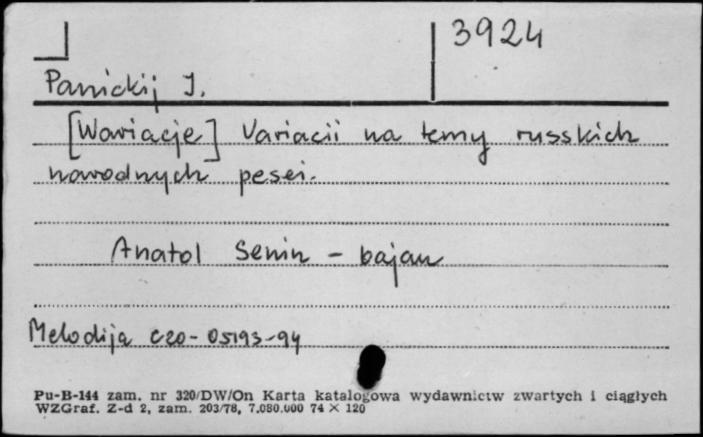 3924
Panickij J.
[Wariacje] Variacii na temy russkich
narodnych pesei.
Anatol Senin - bajan
Melodija C20-05193-94
Pu-B-144 zam. nr 320/DW/On Karta katalogowa wydawnictw zwartych i ciągłych
WZGraf. Z-d 2, zam. 203/78, 7.080.000 74 × 120